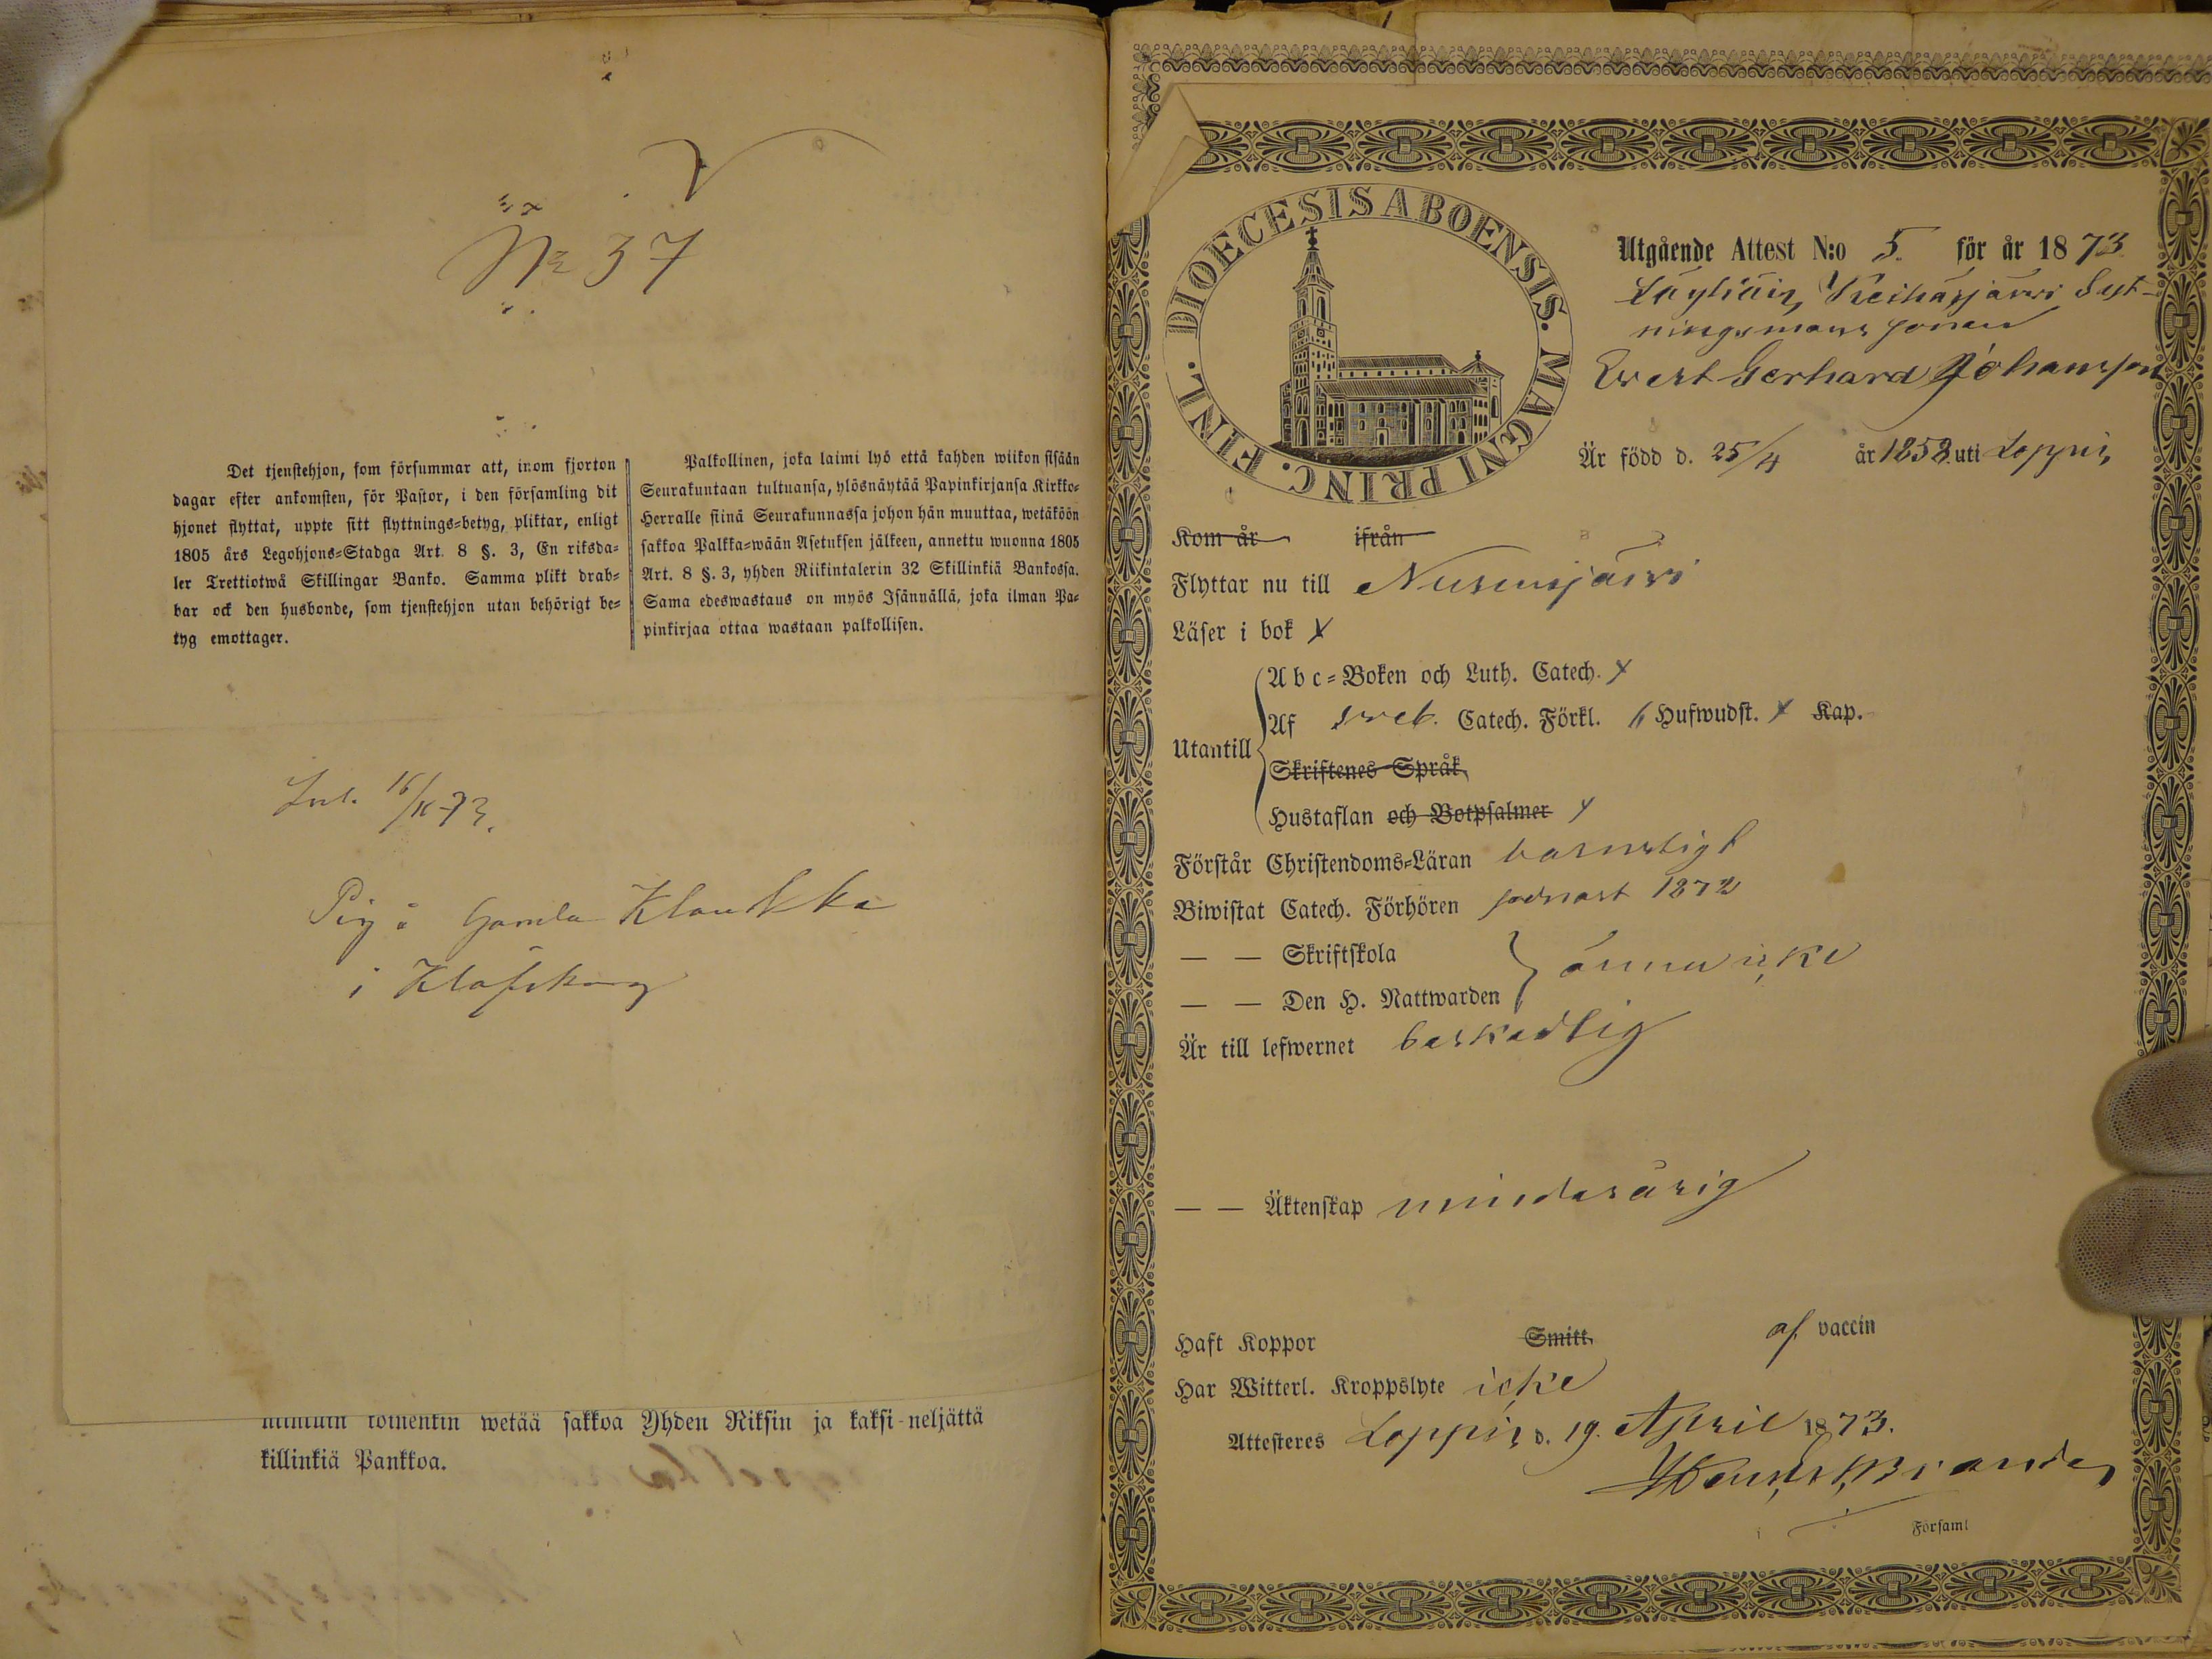 No 37
Det tjenstehjon, som försummar att, inom fjorton
dagar efter ankomsten, för Pastor, i den församling dit
hjonet flyttat, uppte sitt flyttnings=betyg, pliktar, enligt
1805 års Legohjons=Stadga Art. 8 §. 3, En riksda=
ler Trettiotwå Skillingar Banko. Samma plikt drab=
bar ock den husbonde, som tjenstehjon utan behörigt be=
tyg emottager.
Palkollinen, joka laimi lyö että kahden wiikon sisään
Seurakuntaan tultuansa, ylösnäytää Papinkirjansa Kirkko=
Herralle siinä Seurakunnassa johon hän muuttaa, wetäköön
sakkoa Palkka=wään Asetuksen jälkeen, annettu wuonna 1805
Art. 8 §. 3, yhden Riikintalerin 32 Skillinkiä Bankossa.
Sama edeswastaus on myös Isännällä, joka ilman Pa=
pinkirjaa ottaa wastaan palkollisen.
Inl. 16/11 73.
Pig å Gamla Klaukka
i Klöfskog
wetää sakkoa Yhden Riksin ja kaksi neljättä
killinkiä Pankkoa.
DIOECESIS ABOENSIS. MAGNI PRINC. FINL.
Utgående Attest N:o 5. för år 1873
Läyliäis, Keihäsjärwi Syt-
ningsmans sonen
Evert Gerhard Johansson
Är född d. 25/4 år 1858. uti Loppis
Kom år ifrån
Flyttar nu till Nurmijärwi
Läser i bok x
Utantill
A b c = Boken och Luth. Catech. x
Af Sveb. Catech. Förkl. 6 Hufwudst. x Kap.
Skriftenes Språk
Hustaflan och Botpsalmer x
Förstår Christendoms=Läran barnsligt
Biwistat Catech. Förhören sednast 1872
— — Skriftskola
— — Den H. Nattwarden } ännu icke
Är till lefwernet beskedlig
— — Äktenskap minderårig
Haft Koppor Smitt af vaccin
Har Witterl. Kroppslyte icke
Attesteres Loppis d. 19. April 1873.
Församl